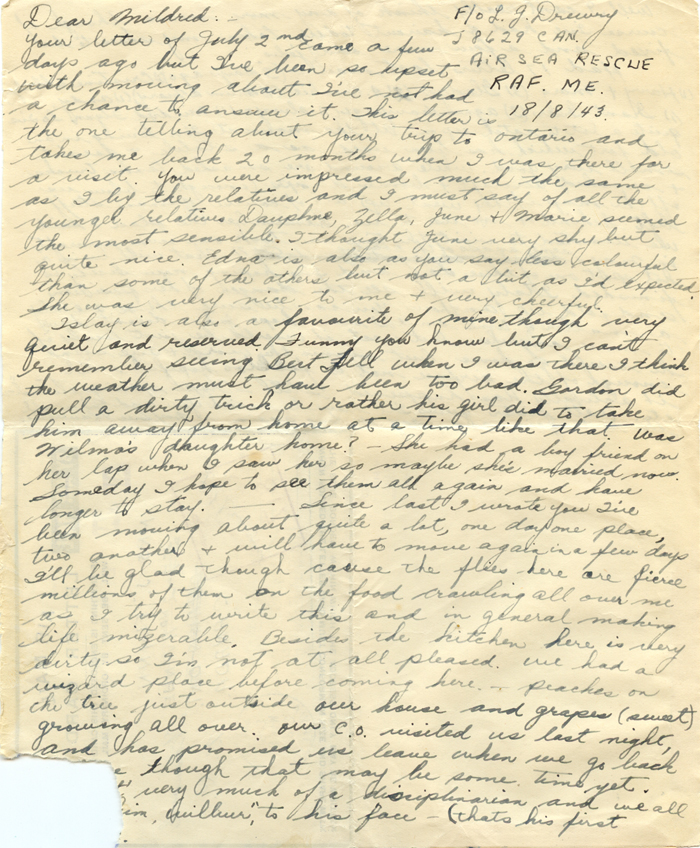 Dear Mildred: -
F/o L. G. Drewry
J 8629 CAN.
AIR SEA RESCUE
RAF. ME.
18/8/43.
Your letter of July 2nd came a few
days ago but I've been so upset
with moving about I've not had
a chance to answer it. This letter is
the one telling about your trip to ontario and
takes me back 20 months when I was there for
a visit. You were impressed much the same
as I by the relatives and I must say of all the
younger relatives Dauphne, Zella, June + Marie seemed
the most sensible. I thought June very shy but
quite nice. Edna is also as you say less colourful
than some of the others but not a bit as I'd expected
She was very nice to me + very cheerful.
Islay is also a favourite of mine though very
quiet and reserved. Funny you know but I can't
remember seeing Bert Fell when I was there I think
the weather must have been too bad. Gordon did
pull a dirty trick or rather his girl did to take
him away from home at a time like that. was
Wilma's daughter home? - She had a boy friend on
her lap when I saw her so maybe she's married now.
Someday I hope to see them all again and have
longer to stay. — Since last I wrote you I've
been moving about quite a lot, one day one place,
two another + will have to move again in a few days
I'll be glad though cause the flies here are fierce
millions of them on the food crawling all over me
as I try to write this and in general making
life mizerable. Besides the kitchen here is very
dirty so I'm not at all pleased. we had a
wizard place before coming here. - peaches on
the tree just outside our house and grapes (sweet)
growing all over. our C.O. visited us last night,
and has promised us leave when we go back
though that may be some time yet.
very much of a disciplinarian and we all
him, "wilbur", to his face - (thats his first